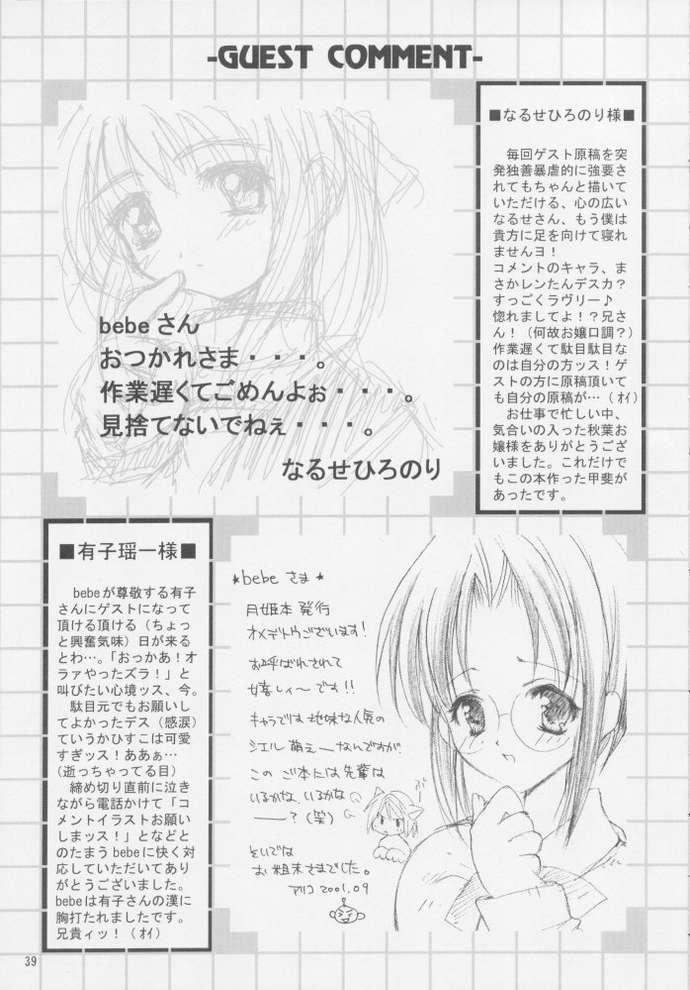 -GUEST COMMENT-
■なるせひろのり様■
　毎回ゲスト原稿を突
発独善暴虐的に強要さ
れてもちゃんと描いて
いただける、心の広い
なるせさん、もう僕は
貴方に足を向けて寝れ
ませんヨ！
コメントのキャラ、ま
さかレンたんデスカ？
すっごくラヴリー♪
惚れましてよ！？兄さ
ん！（何故お嬢口調？）
作業遅くて駄目駄目な
のは自分の方ッス！ゲ
ストの方に原稿頂いて
も自分の原稿が…（ｵｲ）
　お仕事で忙しい中、
気合いの入った秋葉お
嬢様をありがとうござ
いました。これだけで
もこの本作った甲斐が
あったです。
bebeさん
おつかれさま・・・。
作業遅くてごめんよぉ・・・。
見捨てないでねぇ・・・。
なるせひろのり
■有子瑶一様■
　bebeが尊敬する有子
さんにゲストになって
頂ける頂ける（ちょっ
と興奮気味）日が来る
とわ…。「おっかあ！オ
ラァやったズラ！」と
叫びたい心境ッス、今。
　駄目元でもお願いし
てよかったデス（感涙）
ていうかひすこは可愛
すぎッス！ああぁ…
（逝っちゃってる目）
　締め切り直前に泣き
ながら電話かけて「コ
メントイラストお願い
しまッス！」となどと
のたまうbebeに快く対
応していただいてあり
がとうございました。
bebeは有子さんの漢に
胸打たれましたです。
兄貴ィッ！（ｵｲ）
*bebeさま*
月姫本 発行
オメデトウございます！
お呼ばれされて
嬉しィ〜です!!
キャラでは 地味な人気の
シエル 萌えーなんですが
この ご本には 先輩は
いるかな、いるかな
ーー？（笑）
そいでは
お粗末さまでした。
アリコ 2001.09
39